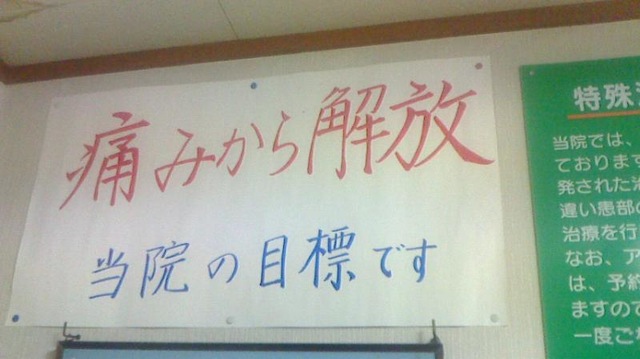 痛みから解放
当院の目標です
特殊
当院では、
ております
発された
違い患部の
治療を行
なお、ア
は、予約
ますので
一度ご